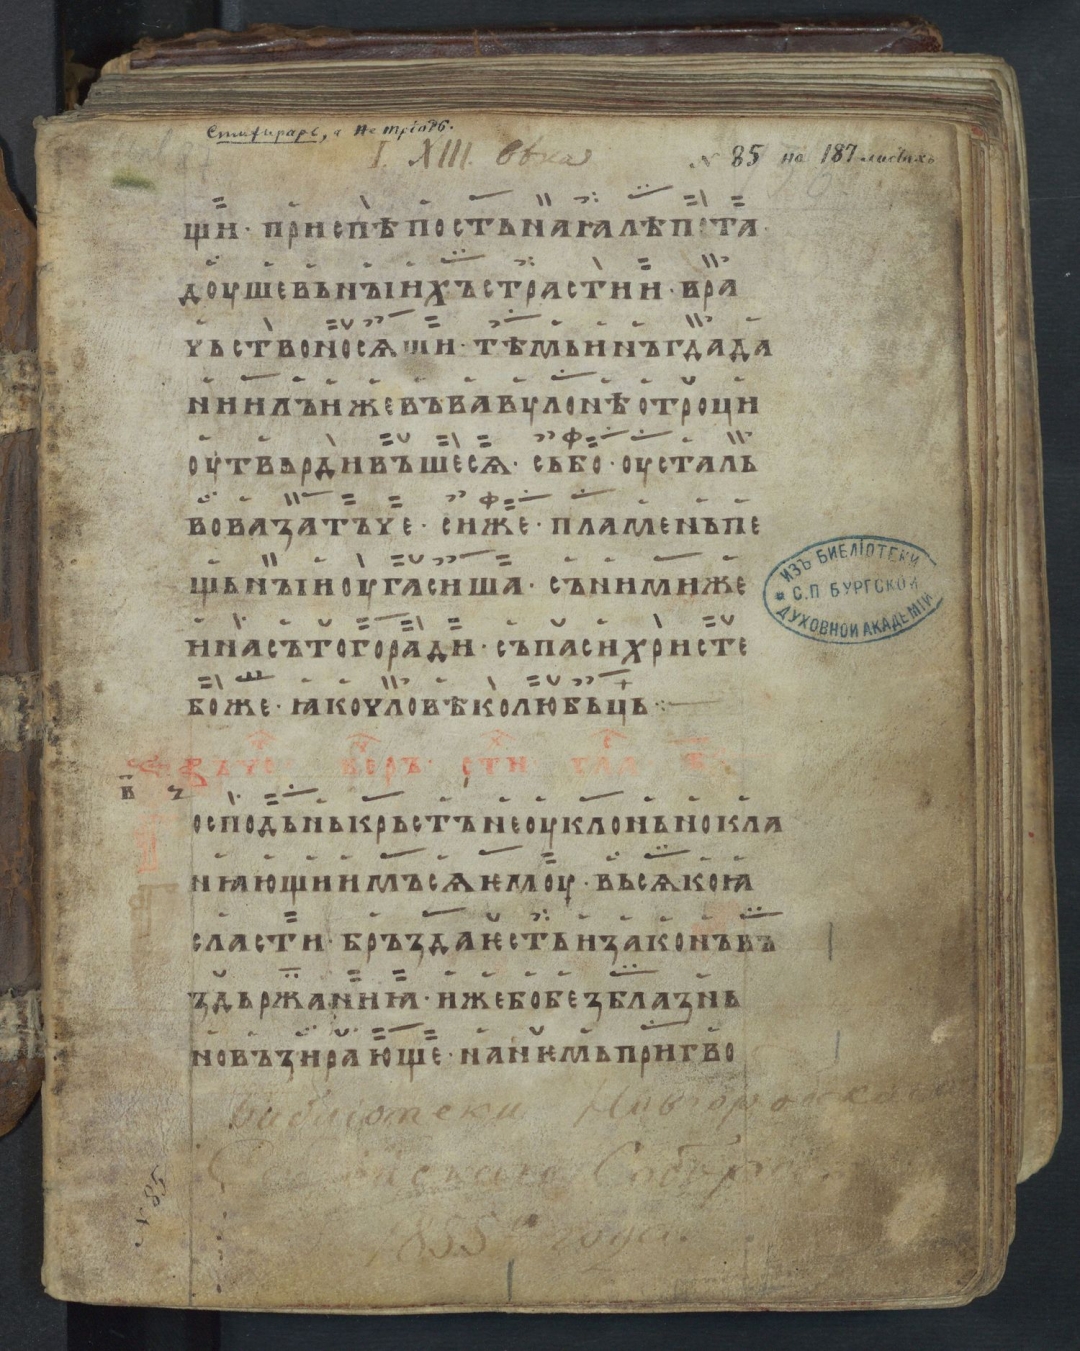 Стихирарь, и не тріодь.
I. XIII. вѣка
№ 85 на 187 листахъ
щи· приспѣ постъ нача лѣпота
доушевьныихъ страстии· вра
чьство носѧщи· тѣмь и нъгда да
ниилъ иже въ вавулонѣ отроци
оутвьрдивъше сѧ· сь бо· оуста ль
вова затъче· си же· пламень пе
щьныи оугасиша· съ ними же
и насъ того ради· съпаси христе
боже· ꙗко чловѣколюбьць
в҃
осподьнь крьстъ неоуклоньно кла
нꙗющиимъ сѧ ѥмоу· вьсѧкоꙗ
сласти· бръздаѥсть и законъ въ
здьржаниꙗ· иже бо безблазнь
но възирающе· на нѥмь пригво
Библіотеки Новгородскаго
Софійскаго Собора
1855 года.
ИЗЪ БИБЛІОТЕКИ
С.П БУРГСКОЙ
ДУХОВНОЙ АКАДЕМІИ